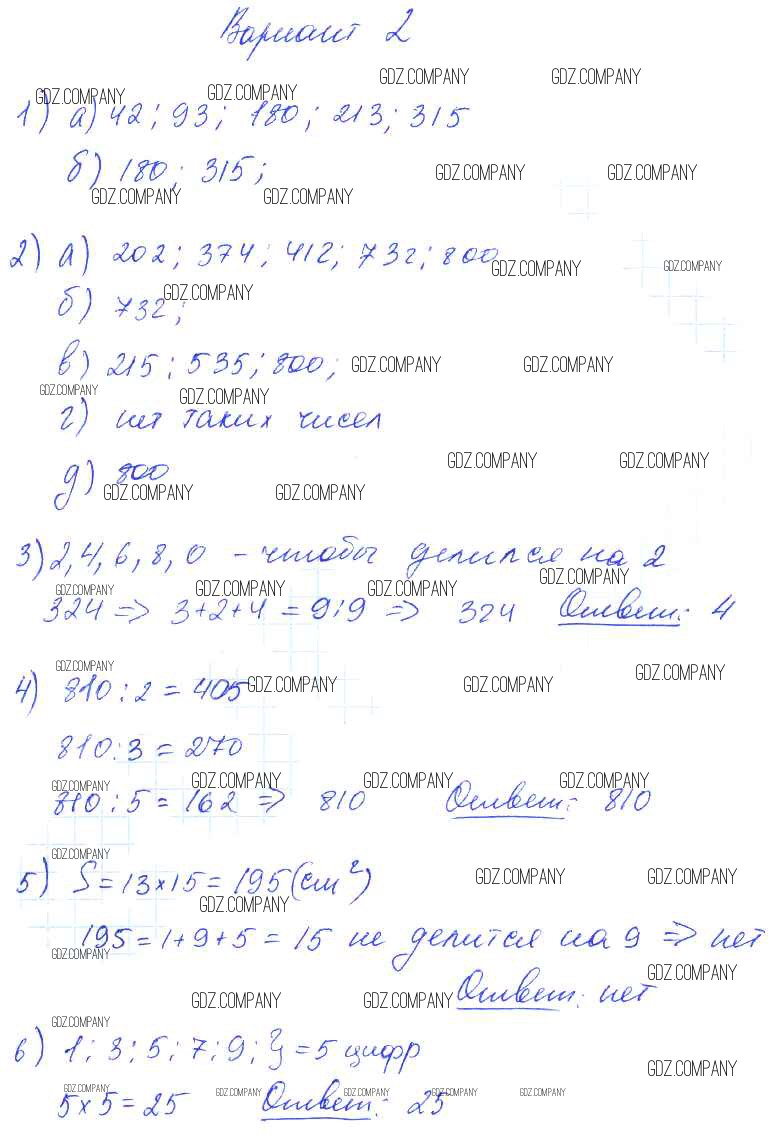 Вариант 2
GDZ.COMPANY GDZ.COMPANY
GDZ.COMPANY GDZ.COMPANY
1) а) 42; 93; 180; 213; 315
б) 180; 315;
GDZ.COMPANY GDZ.COMPANY
GDZ.COMPANY GDZ.COMPANY
2) а) 202; 374; 412; 732; 800
GDZ.COMPANY GDZ.COMPANY
б) 732;
GDZ.COMPANY
в) 215; 535; 800;
GDZ.COMPANY GDZ.COMPANY
GDZ.COMPANY GDZ.COMPANY
г) нет таких чисел
GDZ.COMPANY GDZ.COMPANY
д) 800
GDZ.COMPANY GDZ.COMPANY
3) 2, 4, 6, 8, 0 - чтобы делился на 2
GDZ.COMPANY GDZ.COMPANY GDZ.COMPANY GDZ.COMPANY
324 => 3+2+4 = 9:9 => 324 Ответ: 4
GDZ.COMPANY GDZ.COMPANY
4) 810:2 = 405
GDZ.COMPANY GDZ.COMPANY
810:3 = 270
GDZ.COMPANY GDZ.COMPANY GDZ.COMPANY GDZ.COMPANY
810:5 = 162 => 810 Ответ: 810
GDZ.COMPANY
5) S = 13×15 = 195 (см²)
GDZ.COMPANY GDZ.COMPANY
GDZ.COMPANY
195 = 1+9+5 = 15 не делится на 9 => нет
GDZ.COMPANY GDZ.COMPANY
Ответ: нет
GDZ.COMPANY GDZ.COMPANY
GDZ.COMPANY
6) 1; 3; 5; 7; 9; } = 5 цифр
GDZ.COMPANY
GDZ.COMPANY GDZ.COMPANY GDZ.COMPANY GDZ.COMPANY GDZ.COMPANY
5×5 = 25 Ответ: 25